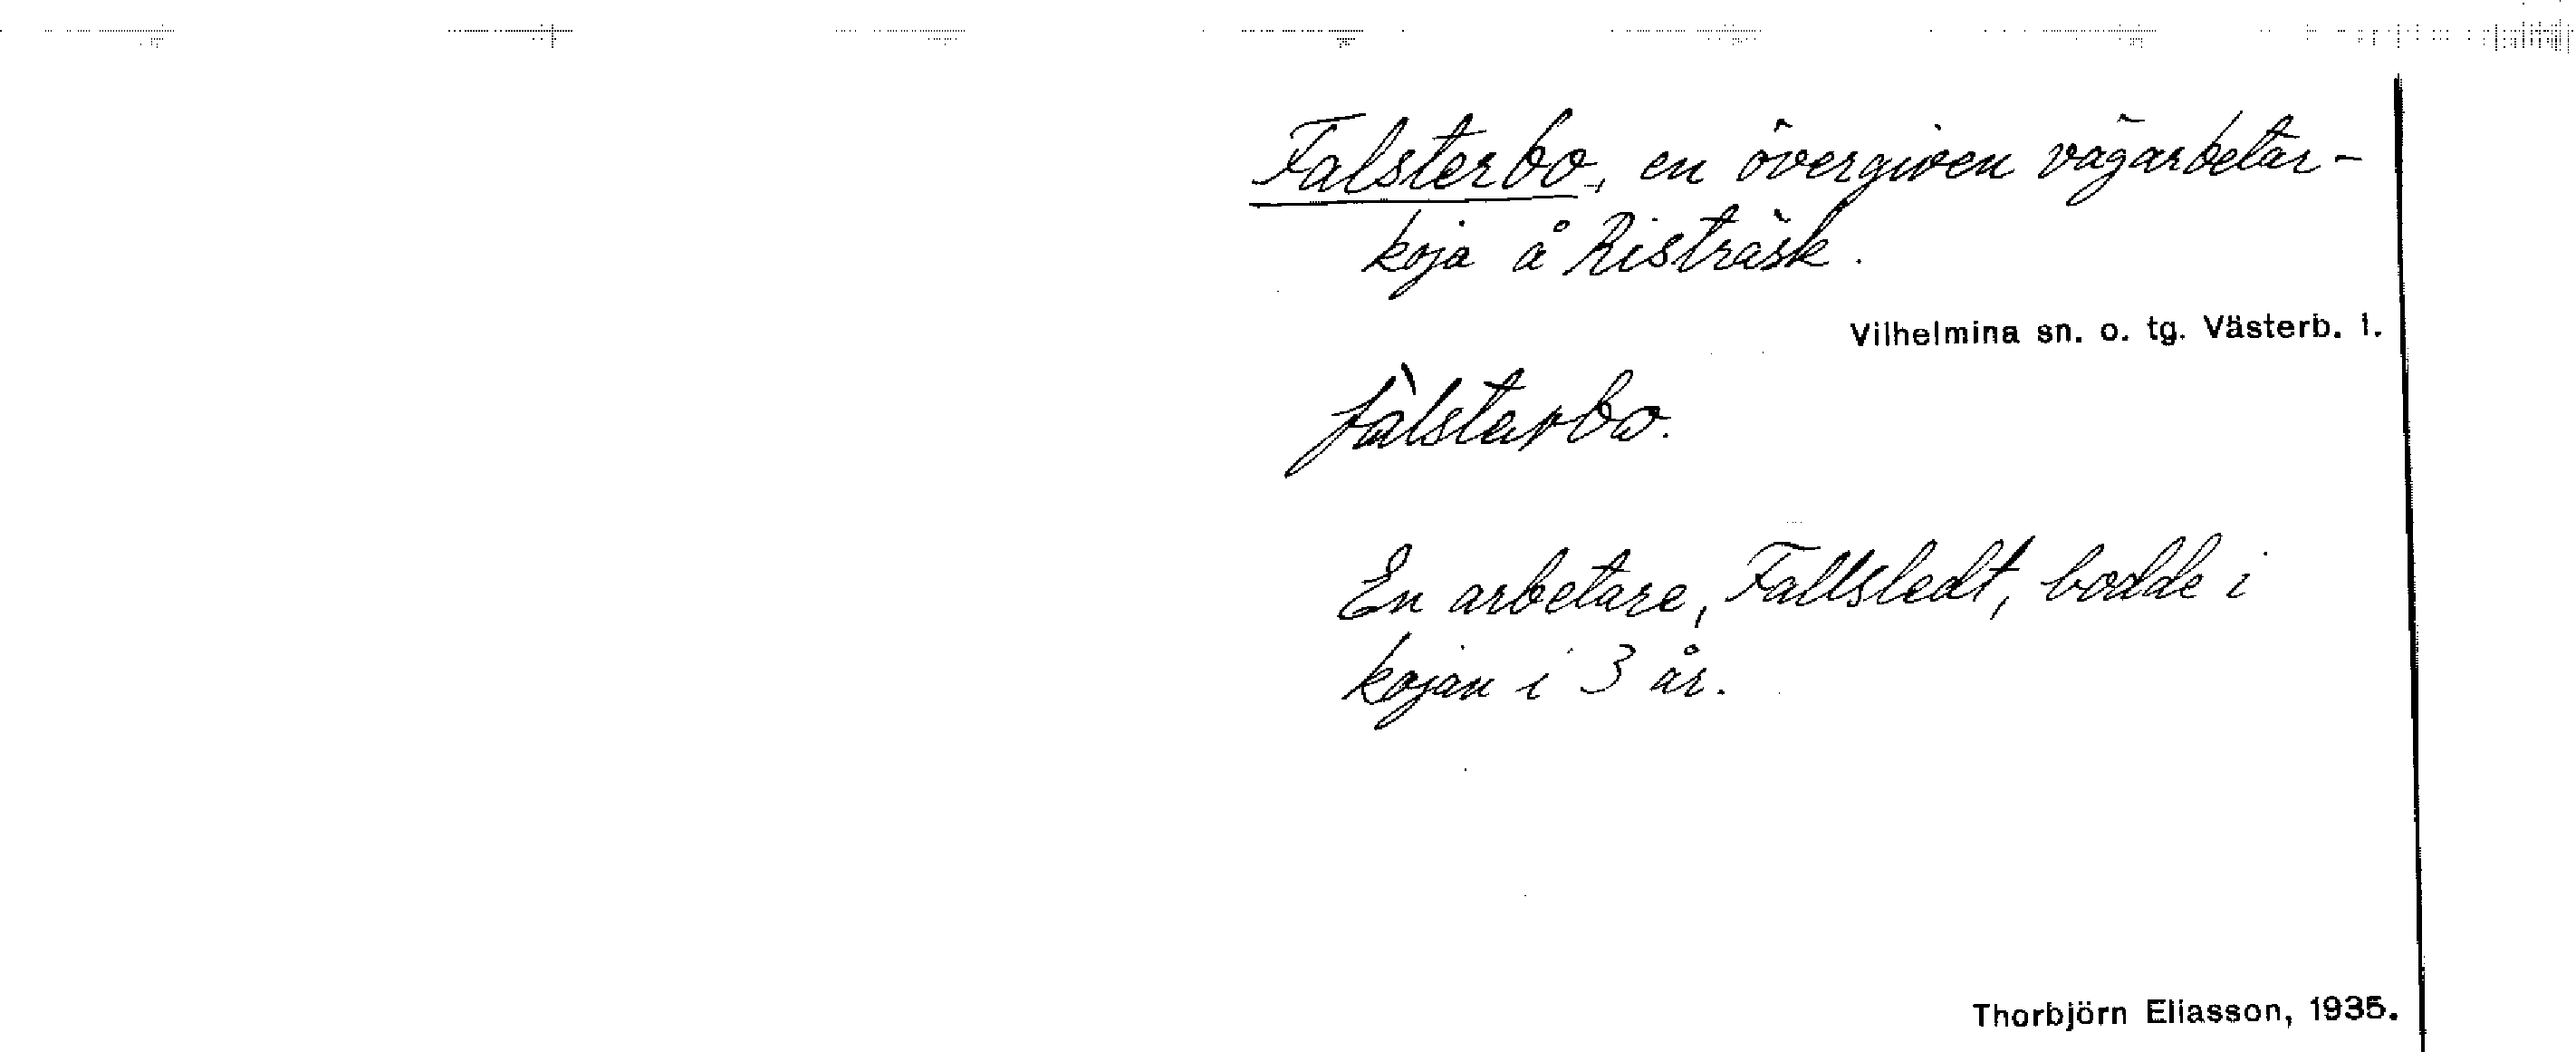 Falsterbo, en övergiven vägarbetar-
koja å Risträsk.
Vilhelmina sn. o. tg. Västerb. l.
fàlstarbo.
En arbetare, Fallsledt, bodde i
kojan i 3 år.
Thorbjörn Eliasson, 1935.